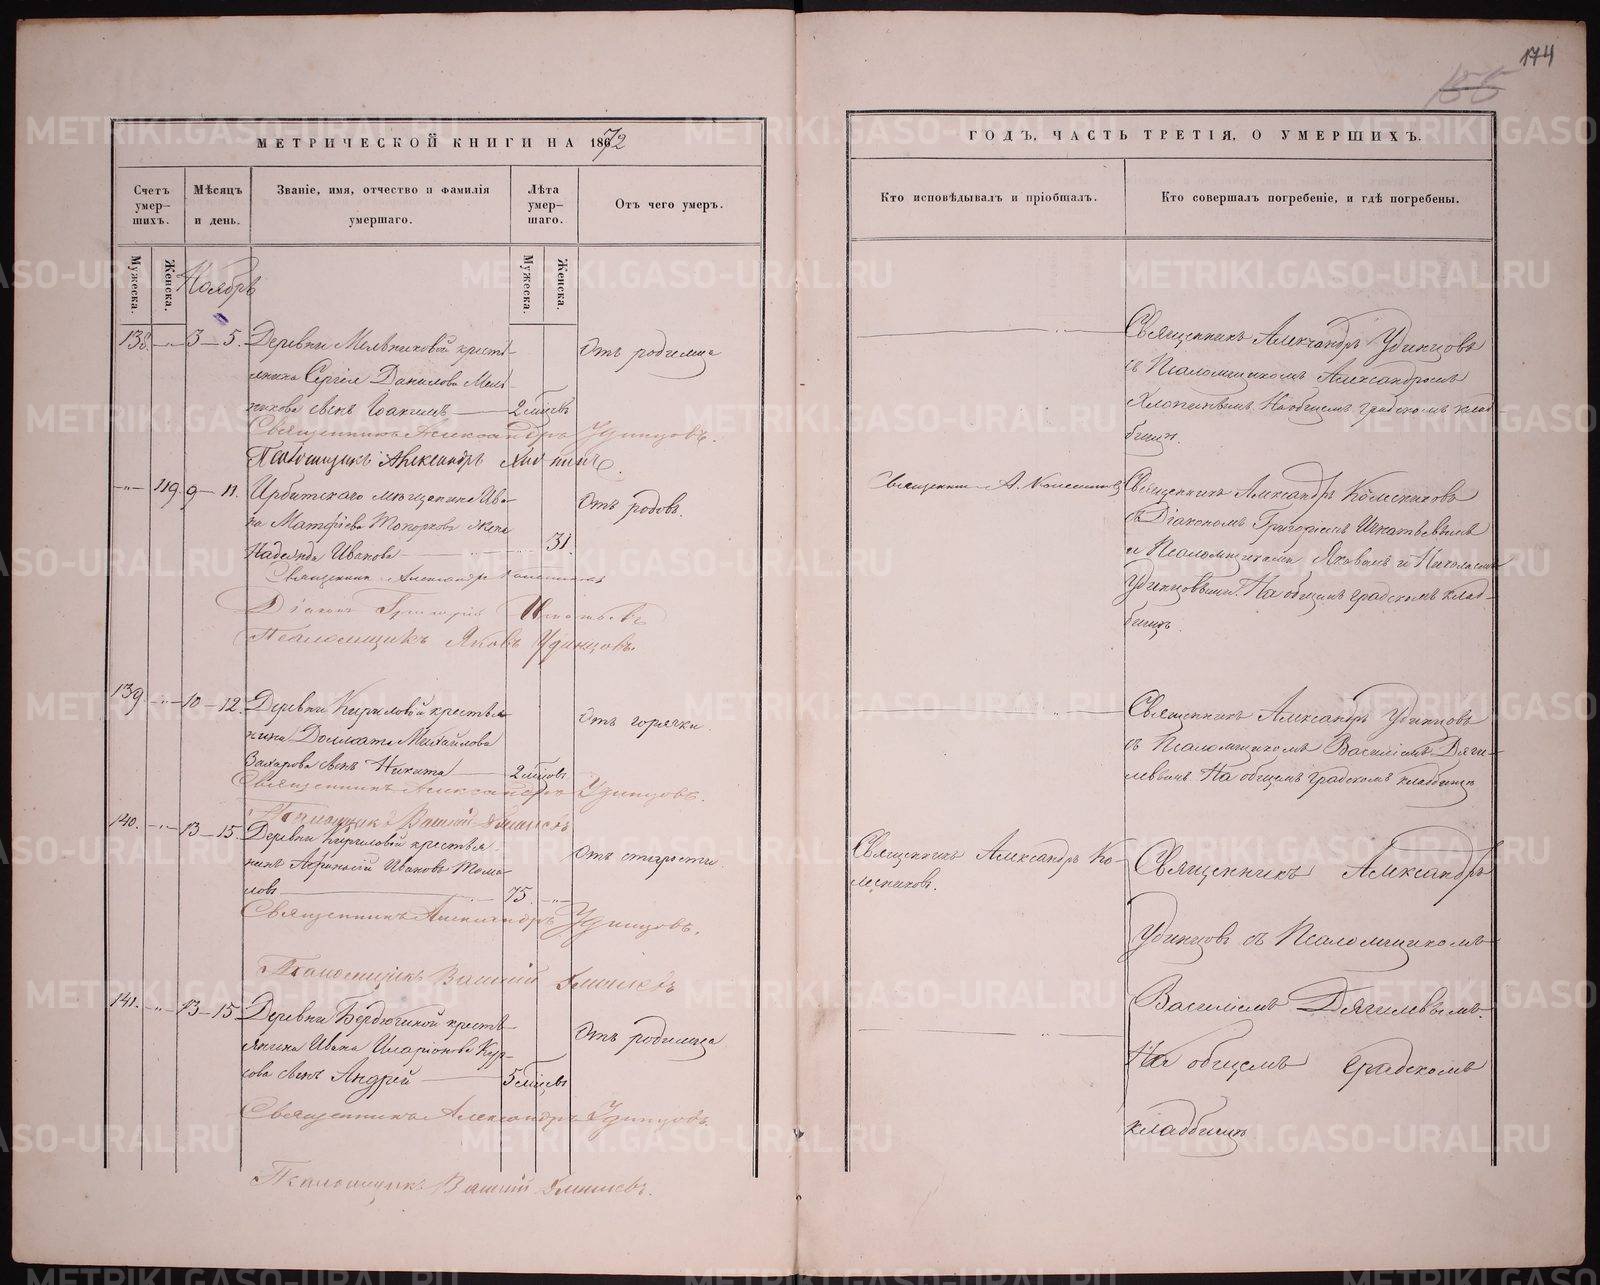 174
155
МЕТРИЧЕСКОЙ КНИГИ НА 1872
Счетъ умер-шихъ.
Мѣсяцъ и день.
Званіе, имя, отчество и фамилія умершаго.
Лѣта умер-шаго.
Отъ чего умеръ.
Мужеска.
Женска.
Мужеска.
Женска.
Ноябрь
138. 3–5. Деревни Мельниковой кресть-
янина Сергія Данилова Мель-
никова сынъ Іоакимъ 2 мѣсяц.
Отъ родимца
Священникъ Александръ Удинцовъ.
Псаломщикъ Александръ
119. 9–11. Ирбитскаго мѣщанина Ива-
на Матфіева Топоркова жена
Надежда Иванова 31.
Отъ родовъ.
Священникъ Александръ Колесниковъ
Діаконъ Григорій Игнатьевъ
Псаломщикъ Яковъ Удинцовъ.
139. 10–12. Деревни Кириловой крестья-
нина Доммата Михайлова
Захарова сынъ Никита 2 мѣсяц.
Отъ горячки.
Священникъ Александръ Удинцовъ.
Псаломщикъ Василій
140. 13–15. Деревни Кириловой крестья-
нинъ Афанасій Ивановъ
75.
Отъ старости
Священникъ Александръ Удинцовъ.
Псаломщикъ Василій
141. 13–15. Деревни Бердюгиной кресть-
янина Ивана Иларіонова
сынъ Андрей 5 мѣсяц.
Отъ родимца
Священникъ Александръ Удинцовъ.
Псаломщикъ Василій
ГОДЪ, ЧАСТЬ ТРЕТІЯ, О УМЕРШИХЪ.
Кто исповѣдывалъ и пріобщалъ.
Кто совершалъ погребеніе, и гдѣ погребены.
Священникъ Александръ Удинцовъ
съ Псаломщикомъ Александромъ
На общемъ градскомъ клад-
бищѣ.
Священникъ А. Колесниковъ
Священникъ Александръ Колесниковъ
съ Діакономъ Григоріемъ Игнатьевымъ
и Псаломщиками Яковомъ и Николаемъ
Удинцовыми. На общемъ градскомъ клад-
бищѣ.
Священникъ Александръ Удинцовъ
съ Псаломщикомъ Василіемъ Дяги-
левымъ. На общемъ градскомъ кладбищѣ
Священникъ Александръ Ко-
лесниковъ.
Священникъ Александръ
Удинцовъ съ Псаломщикомъ
Василіемъ Дягилевымъ.
На общемъ градскомъ
кладбищѣ
METRIKI.GASO-URAL.RU